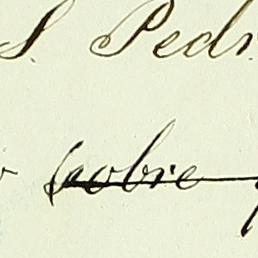 S. Pedr
sobre